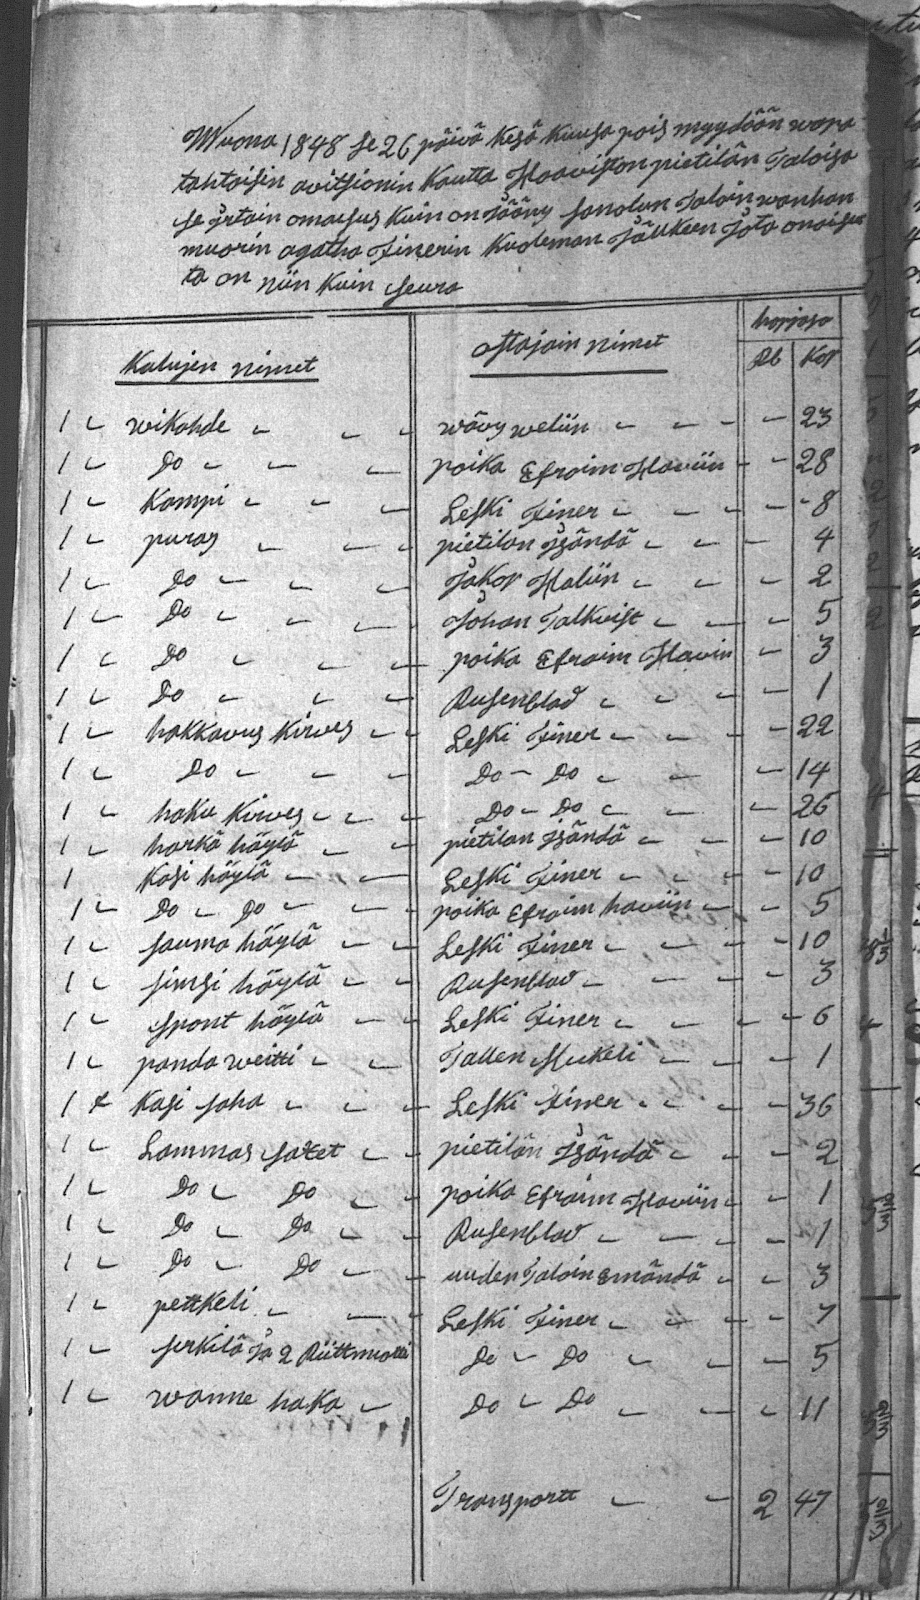 Wuona 1848 se 26 päivä Kesä Kuusa pois myydään wapa
tahtoisin avitsionin Kautta Haaviston pietilän Taloisa
se jrtain omaisus Kuin on jääny sanotun Taloin wanhan
muorin agatha Finerin Kuoleman jälkeen jota omaisut
ta on niin Kuin seura
Kalujen nimet Ostajain nimet hopjasa
Rb Kop
1 wikahde wävy weliin 23
1 Do poika Efraim Haviin 28
1 Kampi Leski Finer 8
1 puras pietilan jsändä 4
1 Do jakop Haliin 2
1 Do johan Talkvist 5
1 Do poika Efraim Havin 3
1 Do Rusenblad 1
1 hakkavus Kirves Leski Finer 22
1 Do Do Do 14
1 haku Kirves Do Do 26
1 harkä höylä pietilan jsändä 10
1 Kasi höylä Leski Finer 10
1 Do Do poika Efraim haviin 5
1 sauma höylä Leski Finer 10
1 simsi höylä Rusenblad 3
1 spont höylä Leski Finer 6
1 panda weitti Tallen Mickeli 1
1 Kasi saha Leski Finer 36
1 Lammas saxet pietilän jsändä 2
1 Do Do poika Efraim Haviin 1
1 Do Do Rusenblad 1
1 Do Do uuden Taloin Emändä 3
1 pettkeli Leski Finer 7
1 serkilä ja 2 Do Do 5
1 wanne haka Do Do 11
Transportt 2 47